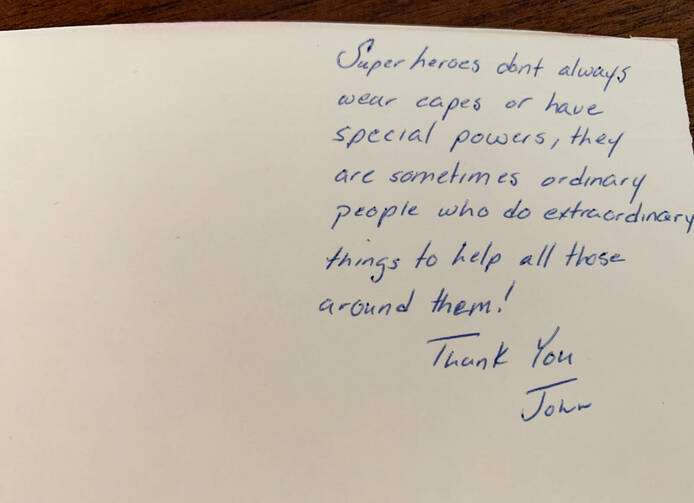 Superheroes dont always
wear capes or have
special powers, they
are sometimes ordinary
people who do extraordinary
things to help all those
around them!
Thank You
John